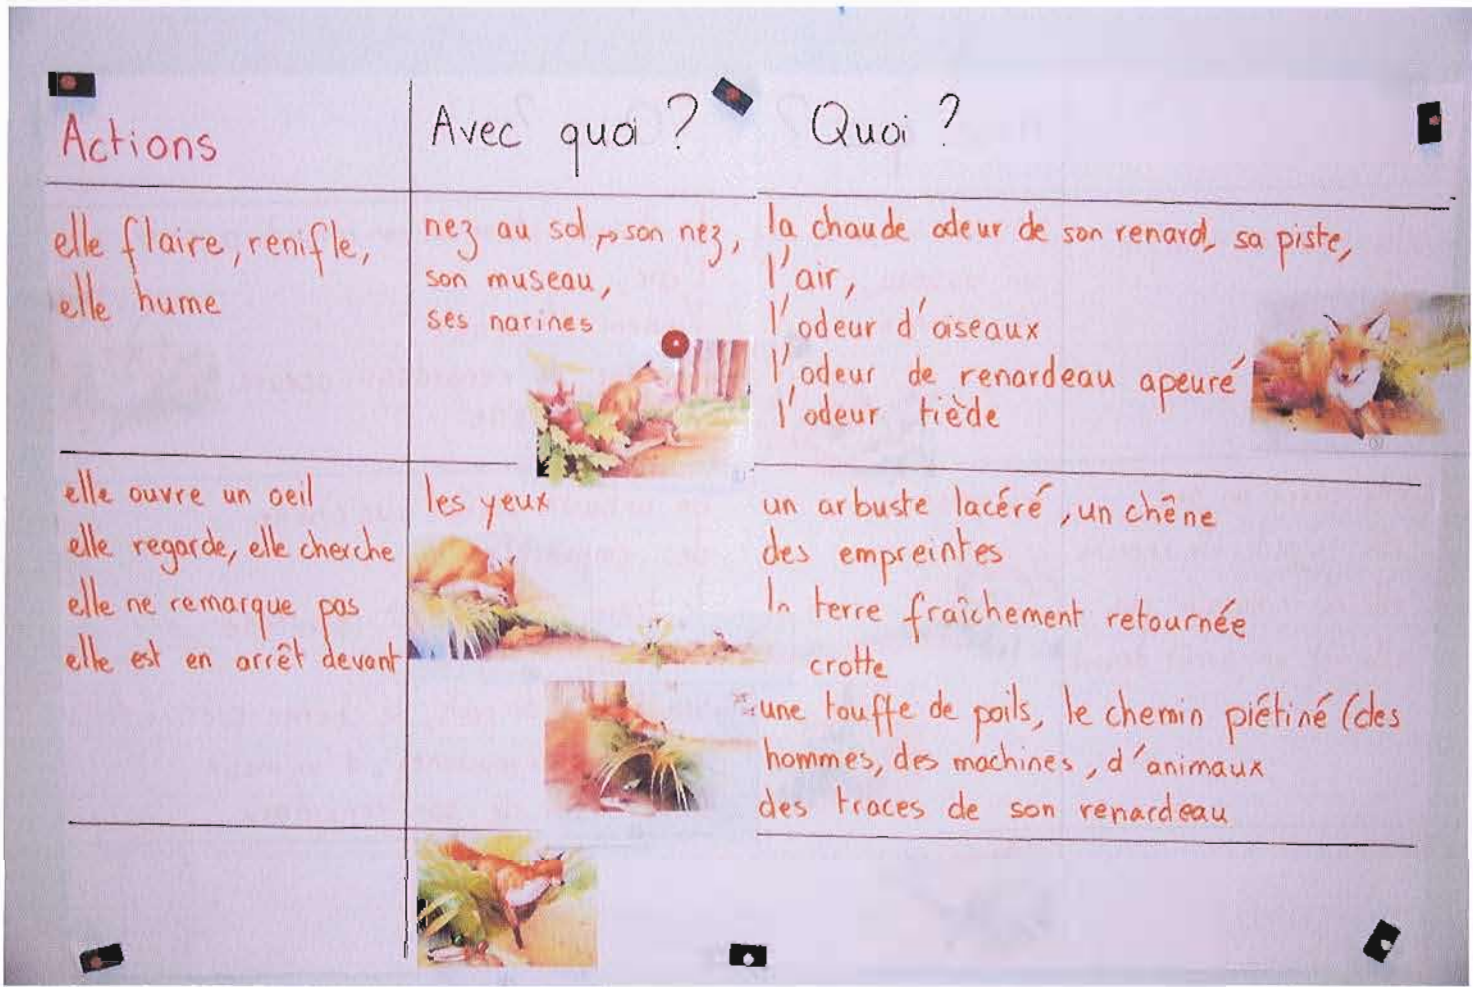 Actions
Avec quoi ?
Quoi ?
elle flaire, renifle,
elle hume
nez au sol → son nez,
son museau,
ses narines
la chaude odeur de son renard, sa piste,
l'air,
l'odeur d'oiseaux
l'odeur de renardeau apeuré
l'odeur tiède
elle ouvre un oeil
elle regarde, elle cherche
elle ne remarque pas
elle est en arrêt devant
les yeux
un arbuste lacéré, un chêne
des empreintes
la terre fraîchement retournée
crotte
une touffe de poils, le chemin piétiné (des
hommes, des machines, d'animaux
des traces de son renardeau